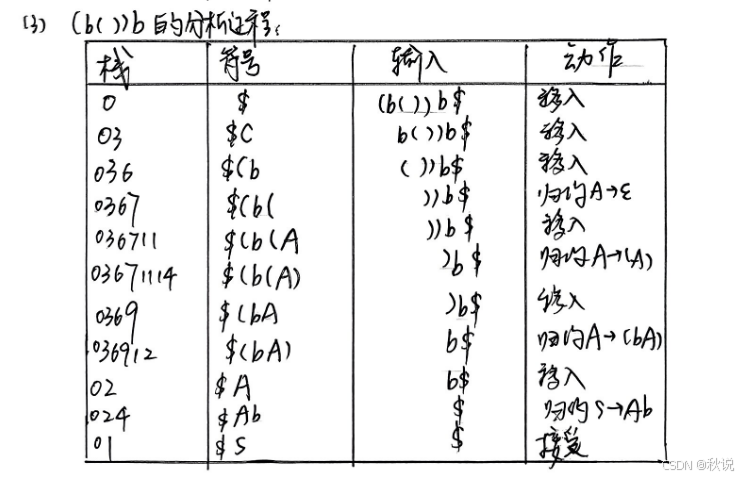 (3) (b())b 的分析过程:
栈 符号 输入 动作
0 $ (b())b$ 移入
03 $( b())b$ 移入
036 $(b ())b$ 移入
0367 $(b( ))b$ 归约A→ε
036711 $(b(A ))b$ 移入
03671114 $(b(A) )b$ 归约A→(A)
0369 $(bA )b$ 移入
036912 $(bA) b$ 归约A→(bA)
02 $A b$ 移入
024 $Ab $ 归约S→Ab
01 $S $ 接受
CSDN @秋说